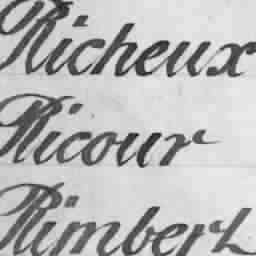 Richeux
Ricour
Rimbert